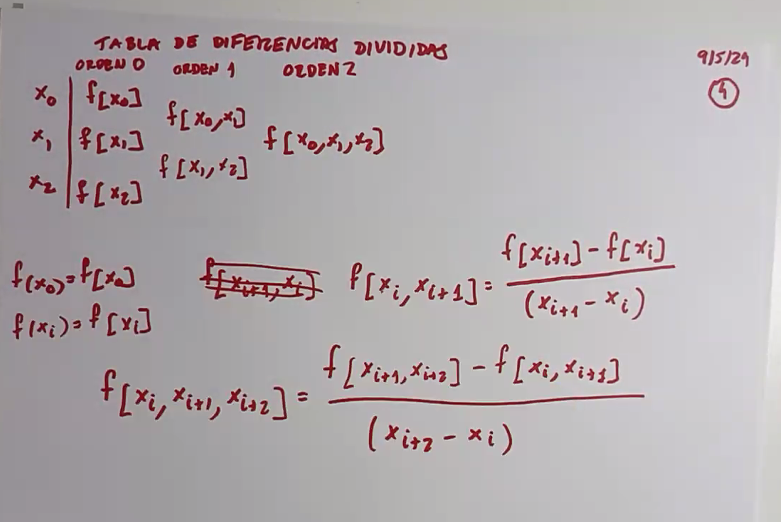 TABLA DE DIFERENCIAS DIVIDIDAS
9/5/24
4
ORDEN 0 ORDEN 1 ORDEN 2
x₀ f[x₀]
f[x₀,x₁]
x₁ f[x₁] f[x₀,x₁,x₂]
f[x₁,x₂]
x₂ f[x₂]
f(x₀)=f[x₀]
f[xᵢ₊₁,xᵢ]
f[xᵢ,xᵢ₊₁]= f[xᵢ₊₁]-f[xᵢ] / (xᵢ₊₁-xᵢ)
f(xᵢ)=f[xᵢ]
f[xᵢ,xᵢ₊₁,xᵢ₊₂]= f[xᵢ₊₁,xᵢ₊₂]-f[xᵢ,xᵢ₊₁] / (xᵢ₊₂-xᵢ)